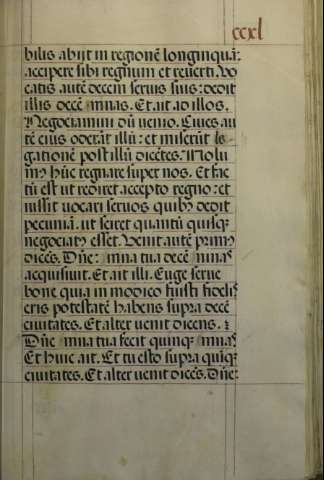 ccxl
bilis abijt in regionē longinquā:
accipere sibi regnum et reuerti. Vo
catis autē decem seruis suis: dedit
illis decē mnas. Et ait ad illos.
Negociamini dū uenio. Ciues au
tē eius oderāt illū: et miserūt le-
gationē post illū dicētes: Nolu
mꝰ hūc regnare super nos. Et fac
tū est ut rediret accepto regno: et
iussit uocari seruos quibꝰ dedit
pecuniā. ut sciret quantū quisqꝫ
negociatꝰ esset. Venit autē primꝰ
dicēs. Dn̄e: mna tua decē mnas
acquisiuit. Et ait illi. Euge serue
bone quia in modico fuisti fidelis
eris potestatē habens supra decē
ciuitates. Et alter uenit dicens.
Dn̄e mna tua fecit quinqꝫ mnas
Et huic ait. Et tu esto supra quīqꝫ
ciuitates. Et alter uenit dicēs. Dn̄e: